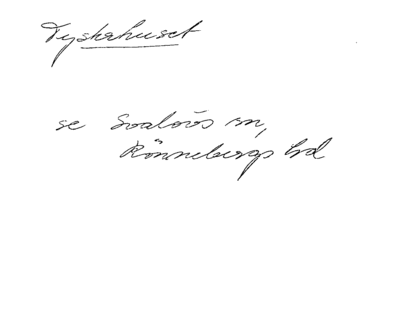 Tyskahuset
se Svalövs sn,
Rönnebergs hd